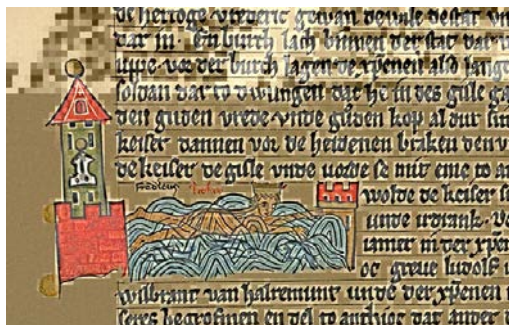 de hertoge vrederic gewan de wile de stat vn
dar in. En burch lach binnen der stat dar
uppe. vor der burch lagen de xpenen also lange
soldan dar to dwungen dat he in des gisle ga
den guden vrede vnde guden kop al dur sin
keiser dannen vor de heidenen braken den v
de keiser de gisle vnde vorde se mit eme to
wolde de keiser s
unde irdrank. vo
iamer in der xpen
oc greue ludolf
wilbrant van halremunt unde der xpenen
begrofmen en del to anthios dat ander d